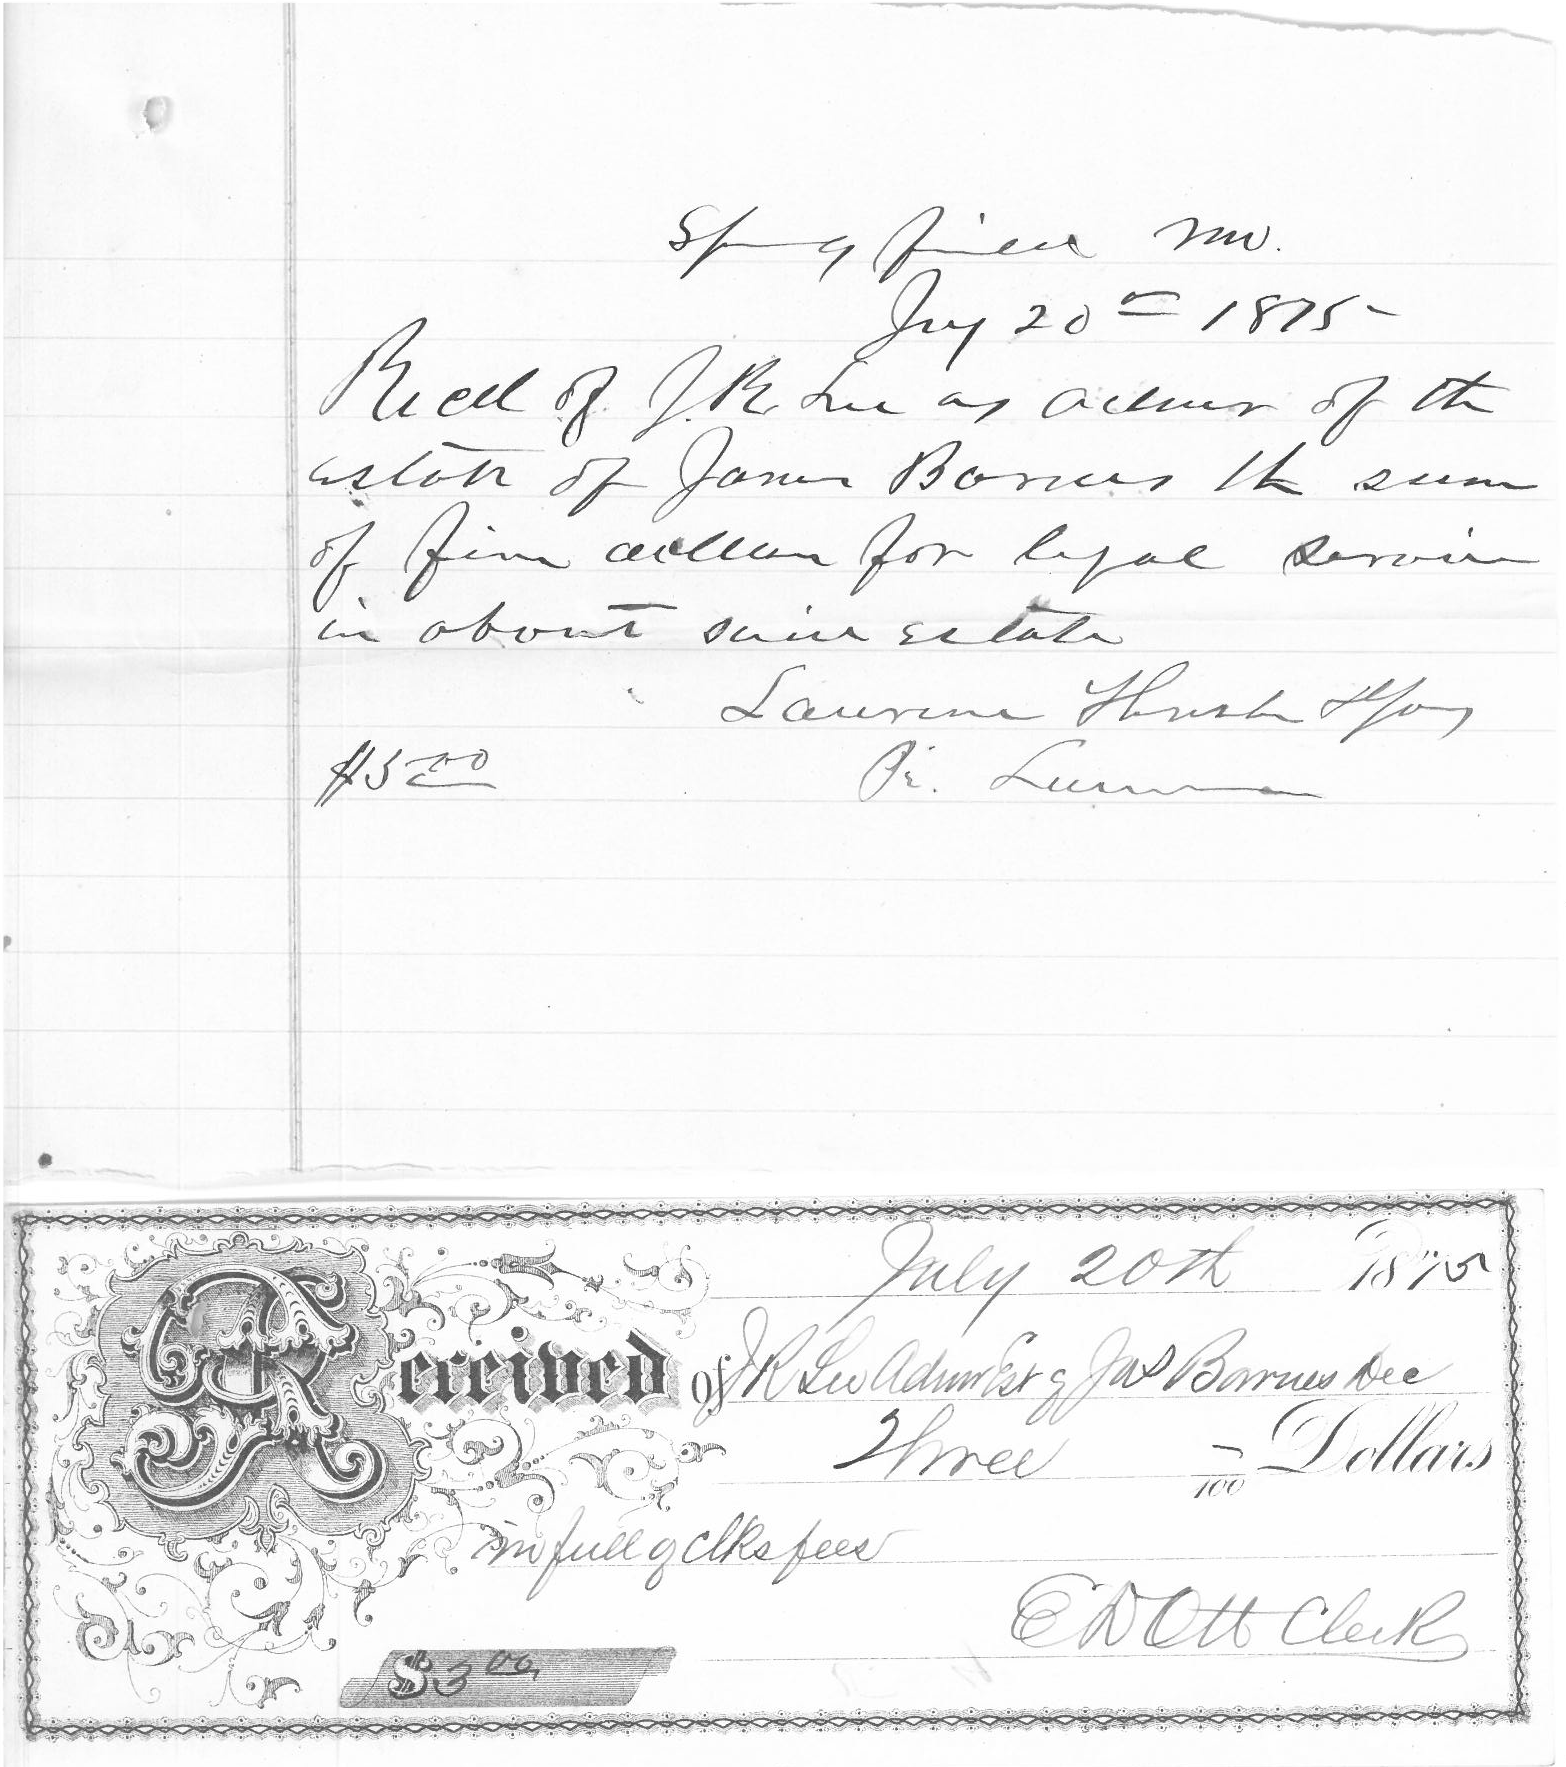 Springfield Mo.
July 20th 1875
Recd of J. R. Lee as admr of the
estate of James Barnes the sum
of five dollars for legal services
in about said estate
Lawrence &
$5.00 Pr.
July 20th 1875
Received of J R Lee Admr Est of Jas Barnes Dec
Three —/100 Dollars
in full of clks fees
E D Ott Clerk
$3.00